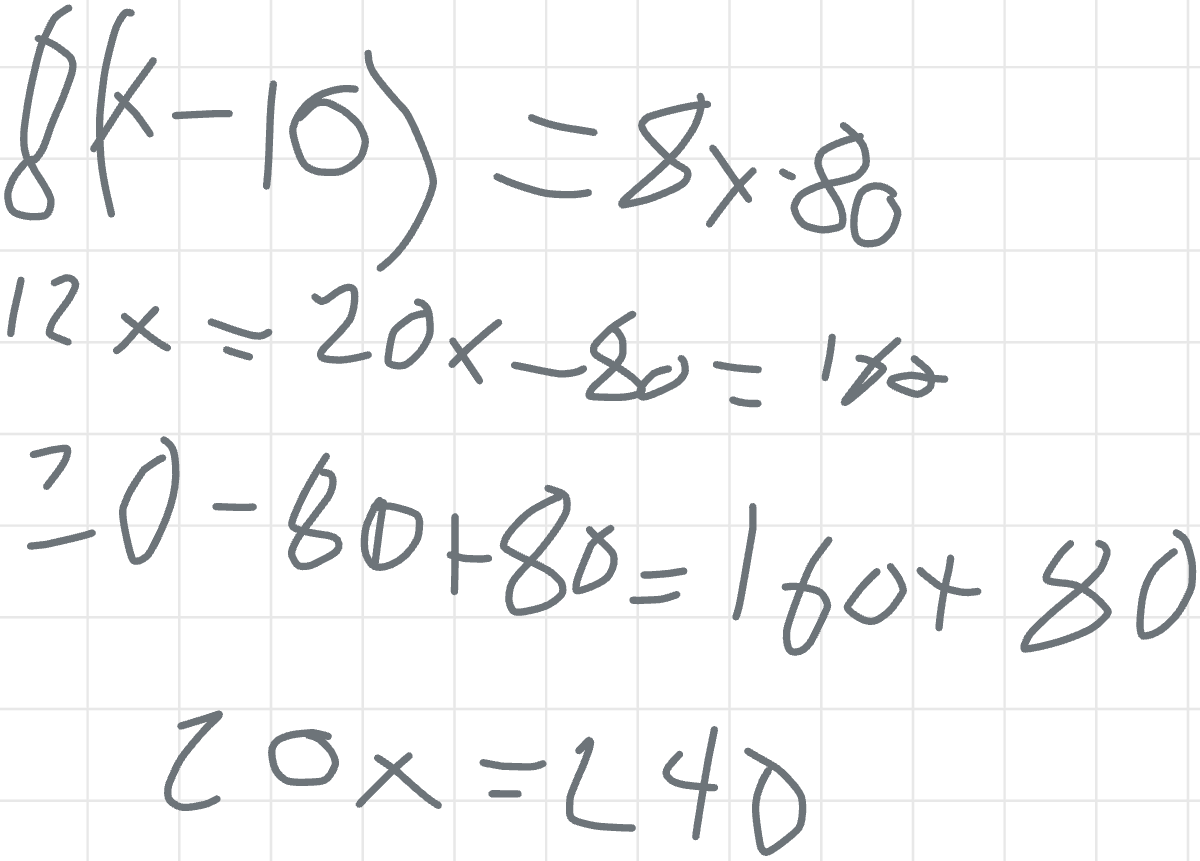 8(x-10) = 8x-80
12x = 20x-80 = 160
20-80+80=160+80
20x=240